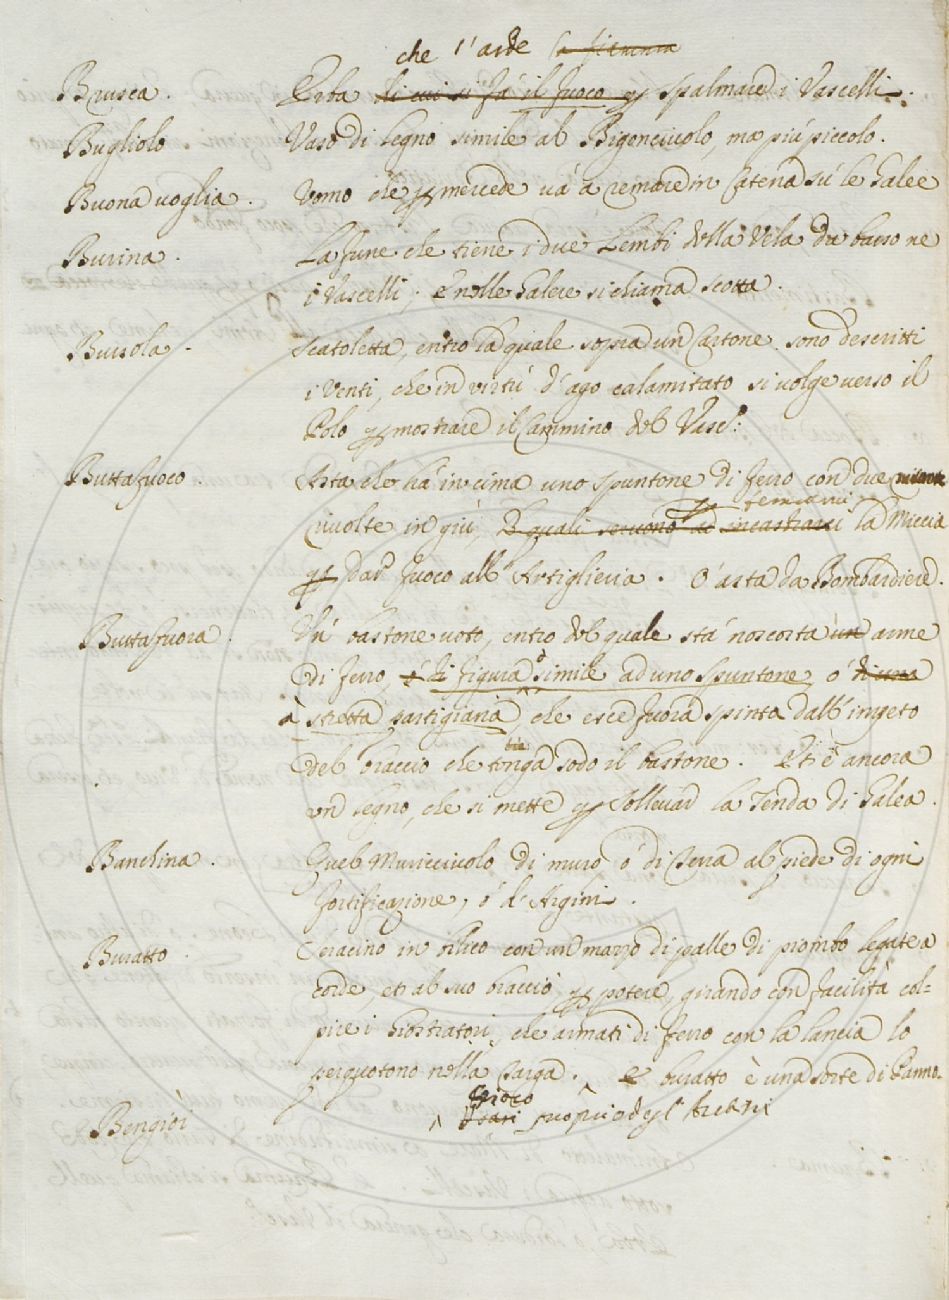 che l'arde
Brusca. Erba di cui si fà il fuoco p spalmare i Vascelli.
Bugliolo Vaso di legno simile al Bigonciuolo, ma più piccolo.
Buona voglia. Uomo che p mercede và a remare in Catena sù le Galee
Burina. La fune che tiene i due Lembi della Vela da basso ne
i Vascelli; e nelle Galere si chiama Scotta.
Bussola. Scatoletta, entro la quale sopra un Cartone sono descritti
i Venti, che in virtù d'ago calamitato si volge verso il
Polo p mostrare il Cammino del Vasc.:
Buttafuoco. Asta che hà in cima uno spuntone di ferro con due
rivolte in giù, le quali servono ad incastrarci la Miccia
p dar fuoco all'Artiglieria. O' asta da Bombardiere.
Buttafuora. Un bastone voto, entro del quale stà nascosta un arme
di ferro, è di figura ò simile ad uno spuntone, ò di una
à stretta partigiana che esce fuora spinta dall'impeto
del braccio che tenga sodo il bastone. Et è ancora
un legno, che si mette p sollevar la Tenda di Galea.
Banchina Quel Muricciuolo di muro ò di Terra al piede di ogni
fortificazione, ò d'Argini.
Buratto. Seracino in bilico con un mazzo di palle di piombo legate a
corde, et al suo braccio p potere, girando con facilità col-
pire i Giostratori, che armati di ferro con la lancia lo
perquotono nella Targa. e buratto è una sorte di Panno.
Bengioi